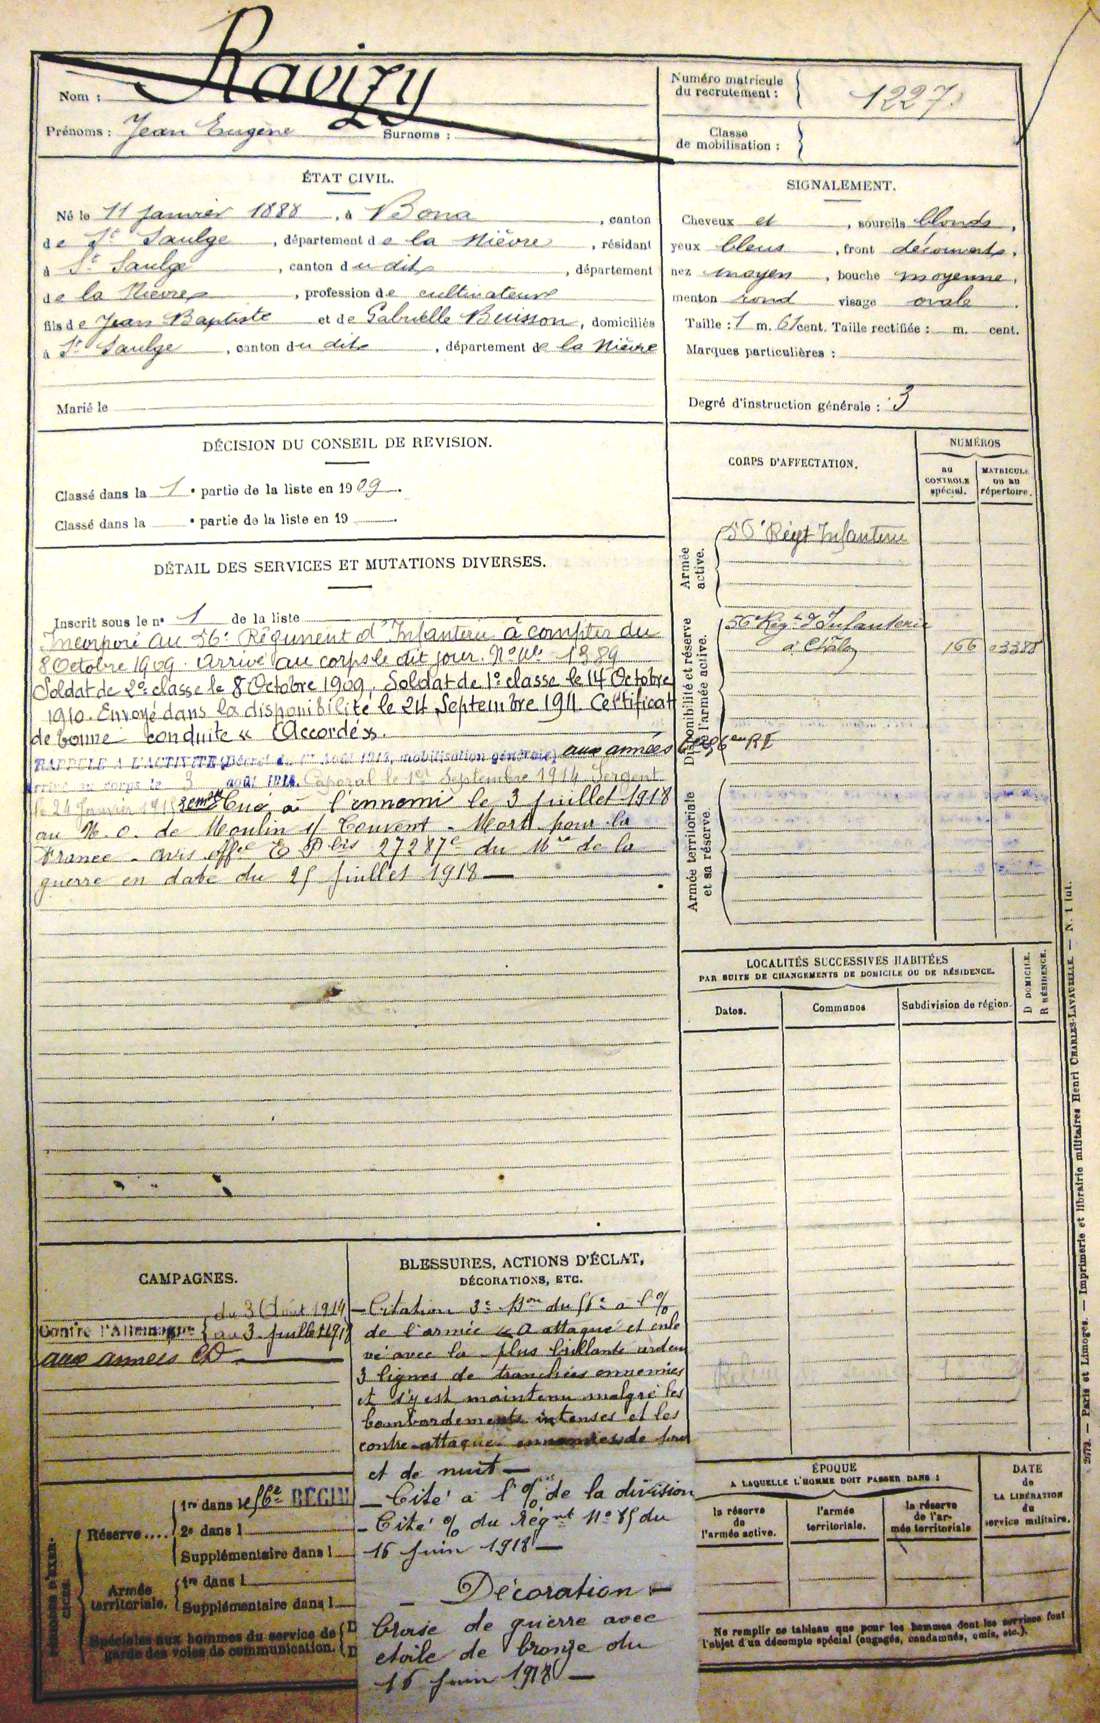 Nom : Ravizy
Prénoms : Jean Eugène Surnoms :
Numéro matricule du recrutement : 1227.
Classe de mobilisation :
ÉTAT CIVIL.
Né le 11 janvier 1888, à Bona, canton
de St Saulge, département de la Nièvre, résidant
à St Saulge, canton du dit, département
de la Nièvre, profession de cultivateur
fils de Jean Baptiste et de Gabrielle Buisson, domiciliés
à St Saulge, canton du dit, département de la Nièvre
Marié le
SIGNALEMENT.
Cheveux et, sourcils blonds,
yeux bleus, front découvert,
nez moyen, bouche moyenne,
menton rond visage ovale.
Taille : 1 m. 61 cent. Taille rectifiée : m. cent.
Marques particulières :
Degré d'instruction générale : 3
DÉCISION DU CONSEIL DE REVISION.
Classé dans la 1e partie de la liste en 1909.
Classé dans la e partie de la liste en 19
DÉTAIL DES SERVICES ET MUTATIONS DIVERSES.
Inscrit sous le no 1 de la liste
Incorporé au 56e Régiment d'Infanterie à compter du
8 Octobre 1909. Arrivé au corps le dit jour. No Mle 1389
Soldat de 2e classe le 8 Octobre 1909, Soldat de 1e classe le 14 Octobre
1910. Envoyé dans la disponibilité le 24 Septembre 1911. Certificat
de bonne conduite « Accordé ».
RAPPELÉ A L'ACTIVITÉ (Décret du 1er Août 1914, mobilisation générale) aux armées
Arrivé au corps le 3 août 1914. Caporal le 1er Septembre 1914 Sergent
le 24 Janvier 1915 Tué à l'ennemi le 3 juillet 1918
au N. O. de Moulin s/ Touvent - Mort pour la
France - avis offel 27287e du Mre de la
guerre en date du 25 juillet 1918 —
CORPS D'AFFECTATION.
NUMÉROS
AU CONTROLE spécial.
MATRICULE OU AU répertoire.
Armée active.
56e Régt Infanterie
Disponibilité et réserve de l'armée active.
56e Régt d'Infanterie
à Chalon 166 03388
Armée territoriale et sa réserve.
LOCALITÉS SUCCESSIVES HABITÉES
PAR SUITE DE CHANGEMENTS DE DOMICILE OU DE RÉSIDENCE.
Dates. Communes Subdivision de région.
D DOMICILE.
R RÉSIDENCE.
CAMPAGNES.
Contre l'Allemagne du 3 Août 1914
au 3 juillet 1918
aux armées
BLESSURES, ACTIONS D'ÉCLAT,
DÉCORATIONS, ETC.
— Citation 3e Bon du 56e à l'%
de l'armée « a attaqué et enle
vé avec la plus brillante ardeur
3 lignes de tranchées ennemies
et s'y est maintenu malgré les
bombardements intenses et les
contre-attaques ennemies de jour
et de nuit —
— Cité à l'% de la division
— Cité % du Régnt No 85 du
16 juin 1918 —
— Décoration —
Croise de guerre avec
etoile de bronze du
16 juin 1918 —
PÉRIODES D'EXERCICES.
Réserve....
1re dans le 56e RÉGIM
2e dans l
Supplémentaire dans l
Armée territoriale.
1re dans l
Supplémentaire dans l
Spéciales aux hommes du service de garde des voies de communication.
ÉPOQUE
A LAQUELLE L'HOMME DOIT PASSER DANS :
la réserve de l'armée active.
l'armée territoriale.
la réserve de l'armée territoriale
DATE de LA LIBÉRATION du service militaire.
Ne remplir ce tableau que pour les hommes dont les services font
l'objet d'un décompte spécial (engagés, condamnés, omis, etc.).
Paris et Limoges. — Imprimerie et librairie militaires Henri CHARLES-LAVAUZELLE. — N. 1 int.